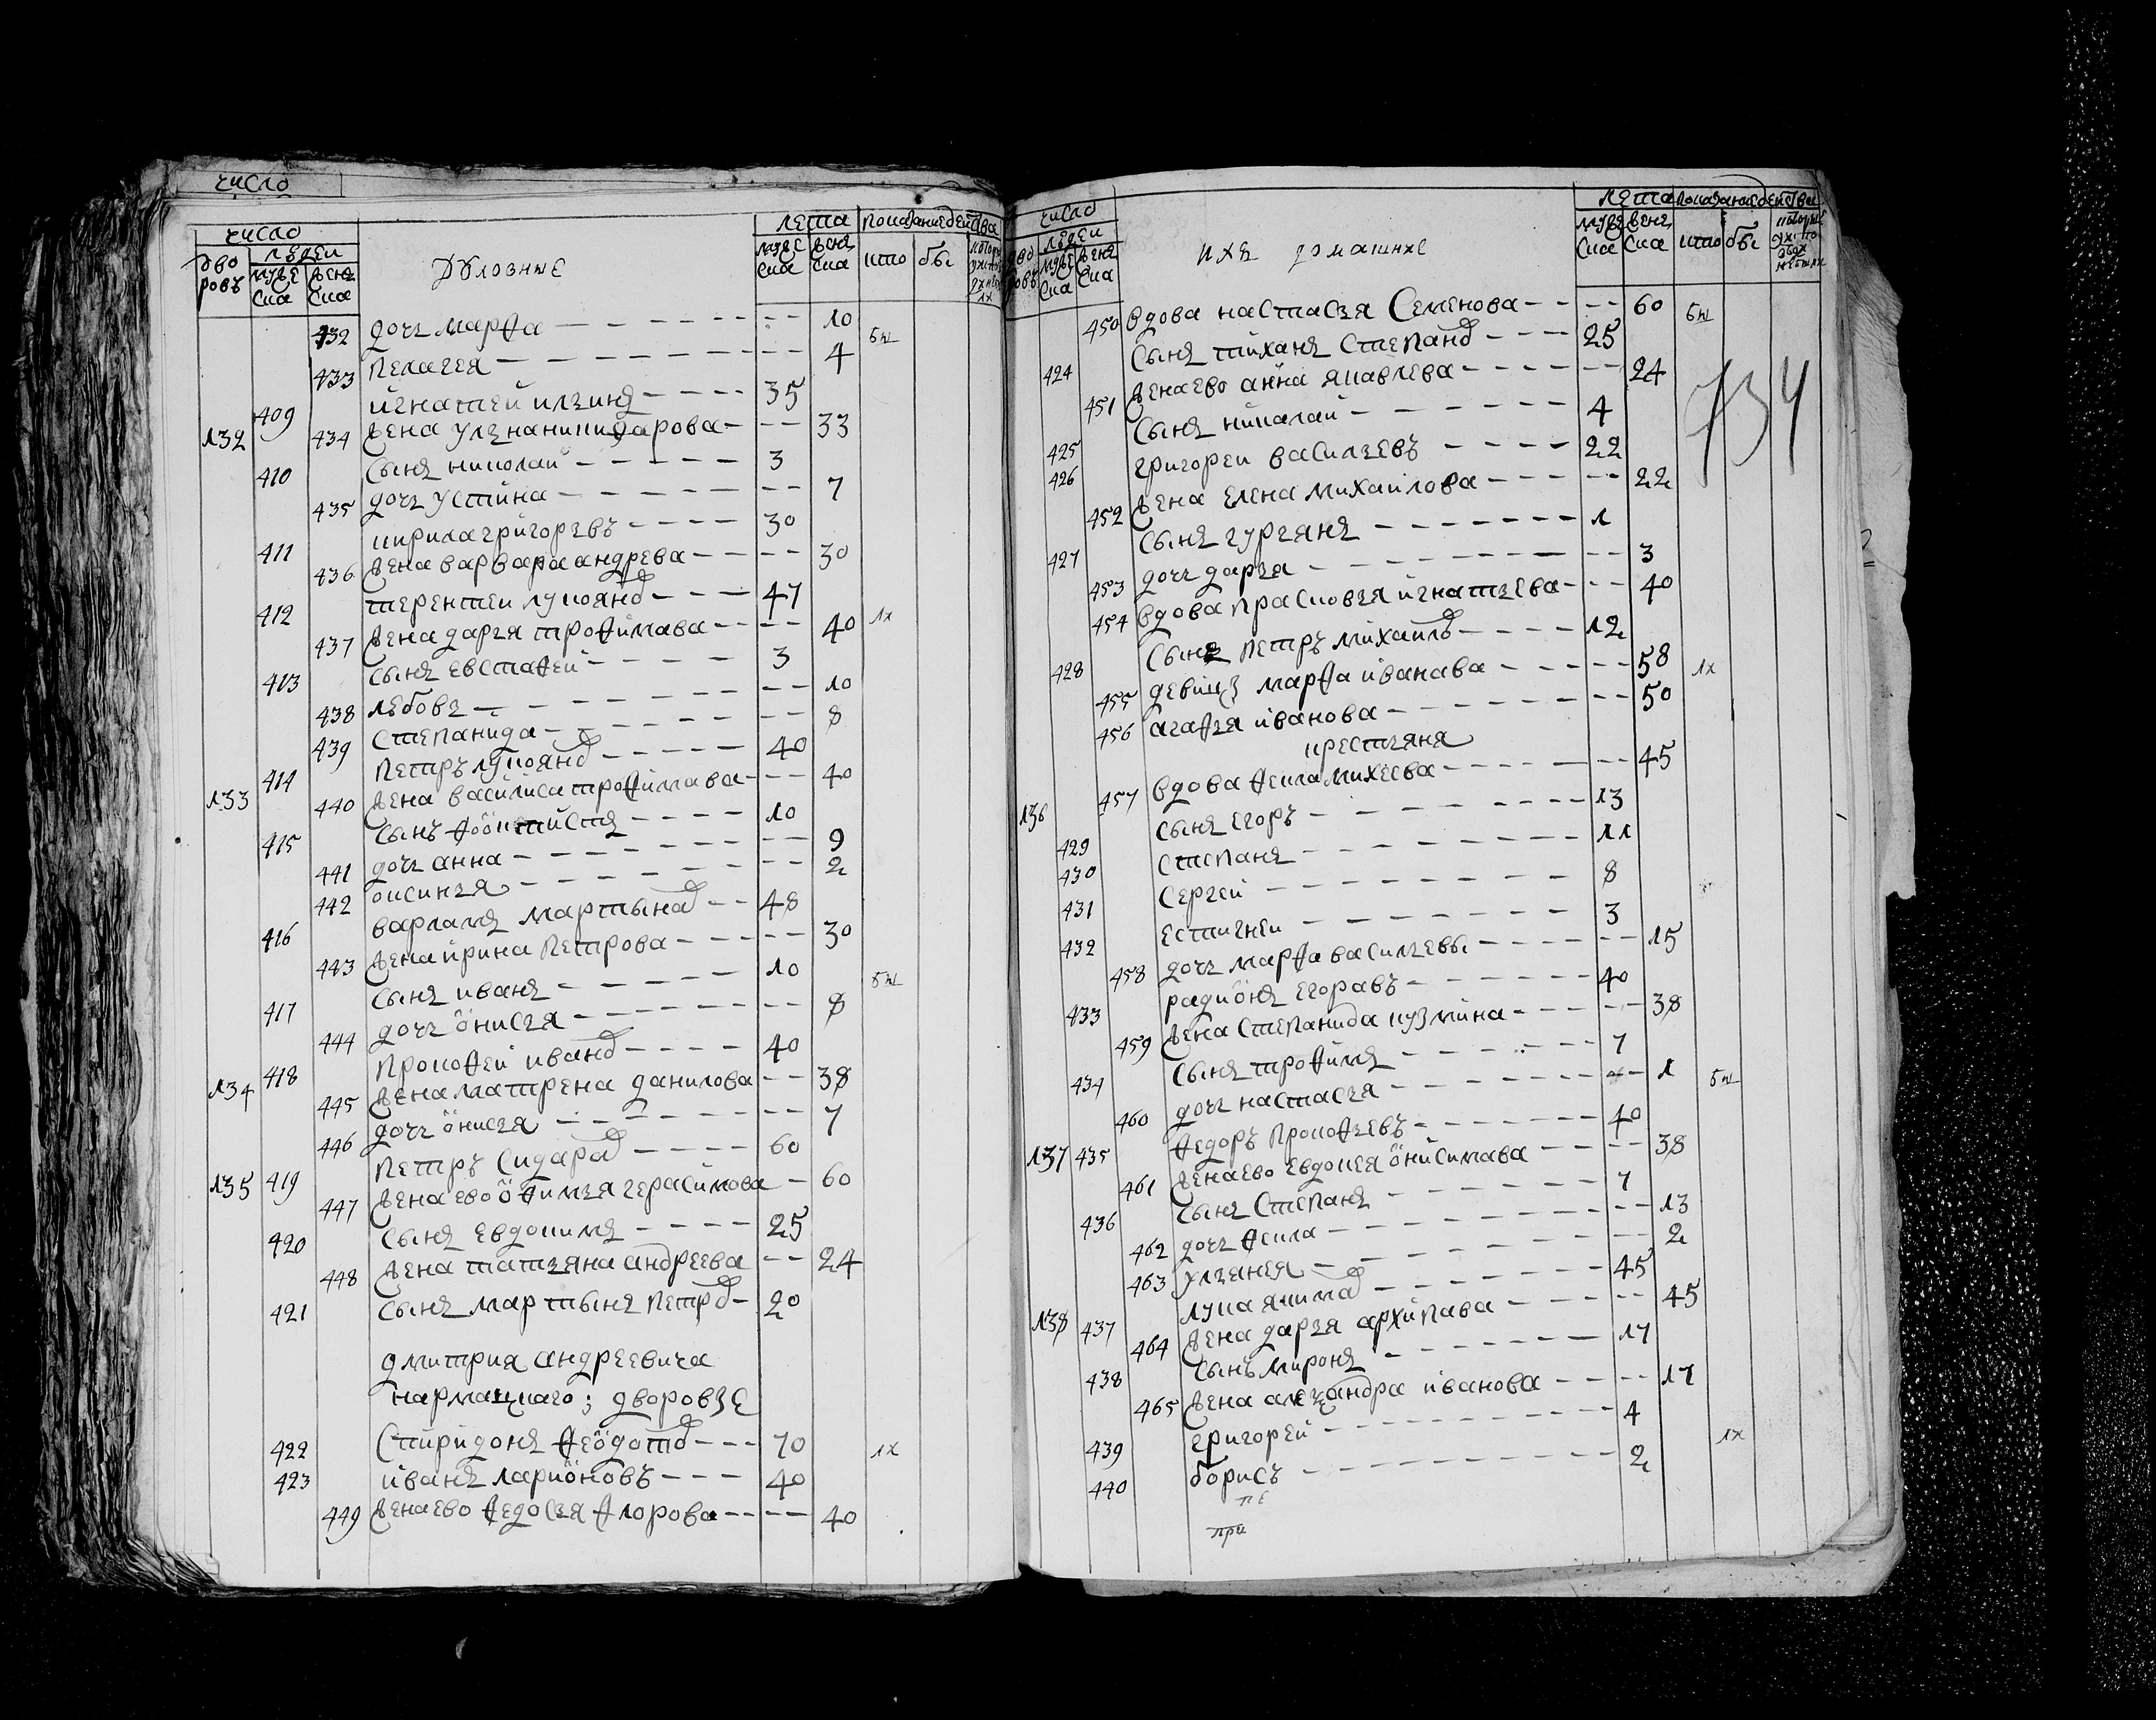 число
число
людеи
дво
ровъ
муже
ска
женс
ска
духовные
лета
мужс
ска
женс
ска
показание действа
кто
бы
432 дочь марфа 10 бы
433 пелагея 4
409 игнатей ильинъ 35
132 434 жена ульяна никифарова 33
410 сынъ николаи 3
435 дочь устина 7
411 кирила григоревъ 30
436 жена варвара андрева 30
412 терентеи лукояно 47
437 жена дарья трофимава 40 1х
413 сынъ евстафеи 3
438 любовь 10
439 степанида 8
414 петръ лукояно 40
133 440 жена василиса трофимава 40
415 сынъ фооктистъ 10
441 дочь анна 9
442 оксинья 2
416 варламъ мартыно 48
443 жена ирина петрова 30
417 сынъ иванъ 10 бы
444 дочь онисья 8
134 418 прокофеи ивано 40
445 жена матрена данилова 38
446 дочь онисья 7
135 419 петръ сидаро 60
447 жена ево офимья герасимова 60
420 сынъ евдокимъ 25
448 жена татьяна андреева 24
421 сынъ мартынъ петро 20
дмитрия андреевича
нармацкаго; дворовые
422 спиридонъ феодото 70 1х
423 иванъ ларионовъ 40
449 жена ево федосья флорова 40
число
дво
ровъ
людеи
муже
ска
жена
ска
ихъ домашние
лета
муже
ска
жена
ска
показание действа
кто
бы
450 вдова настасья семенова 60 бы
424 сынъ тиханъ степано 25
451 жена ево анна яковлева 24
425 сынъ николаи 4
426 григореи васильевъ 22
452 жена елена михаилова 22
427 сынъ гурьянъ 1
453 дочь дарья 3
454 вдова прасковья игнатьева 40
428 сынъ петръ михаило 12
455 девицы марфа иванава 58 1х
456 агафья иванова 50
крестьяня
136 457 вдова фекла михеева 45
429 сынъ егоръ 13
430 степанъ 11
431 сергеи 8
432 естигнеи 3
458 дочь марфа васильевы 15
433 радионъ егоравъ 40
459 жена степанида кузмина 38
434 сынъ трофимъ 7
460 дочь настасья 1 бы
137 435 федоръ прокофьевъ 40
461 жена ево евдокея онисимава 38
436 сынъ степанъ 7
462 дочь фекла 13
463 ульянея 2
138 437 лука якимо 45
464 жена дарья архипава 45
438 сынъ миронъ 17
465 жена александра иванова 17
439 григореи 4 1х
440 борисъ 2
пе
при
734